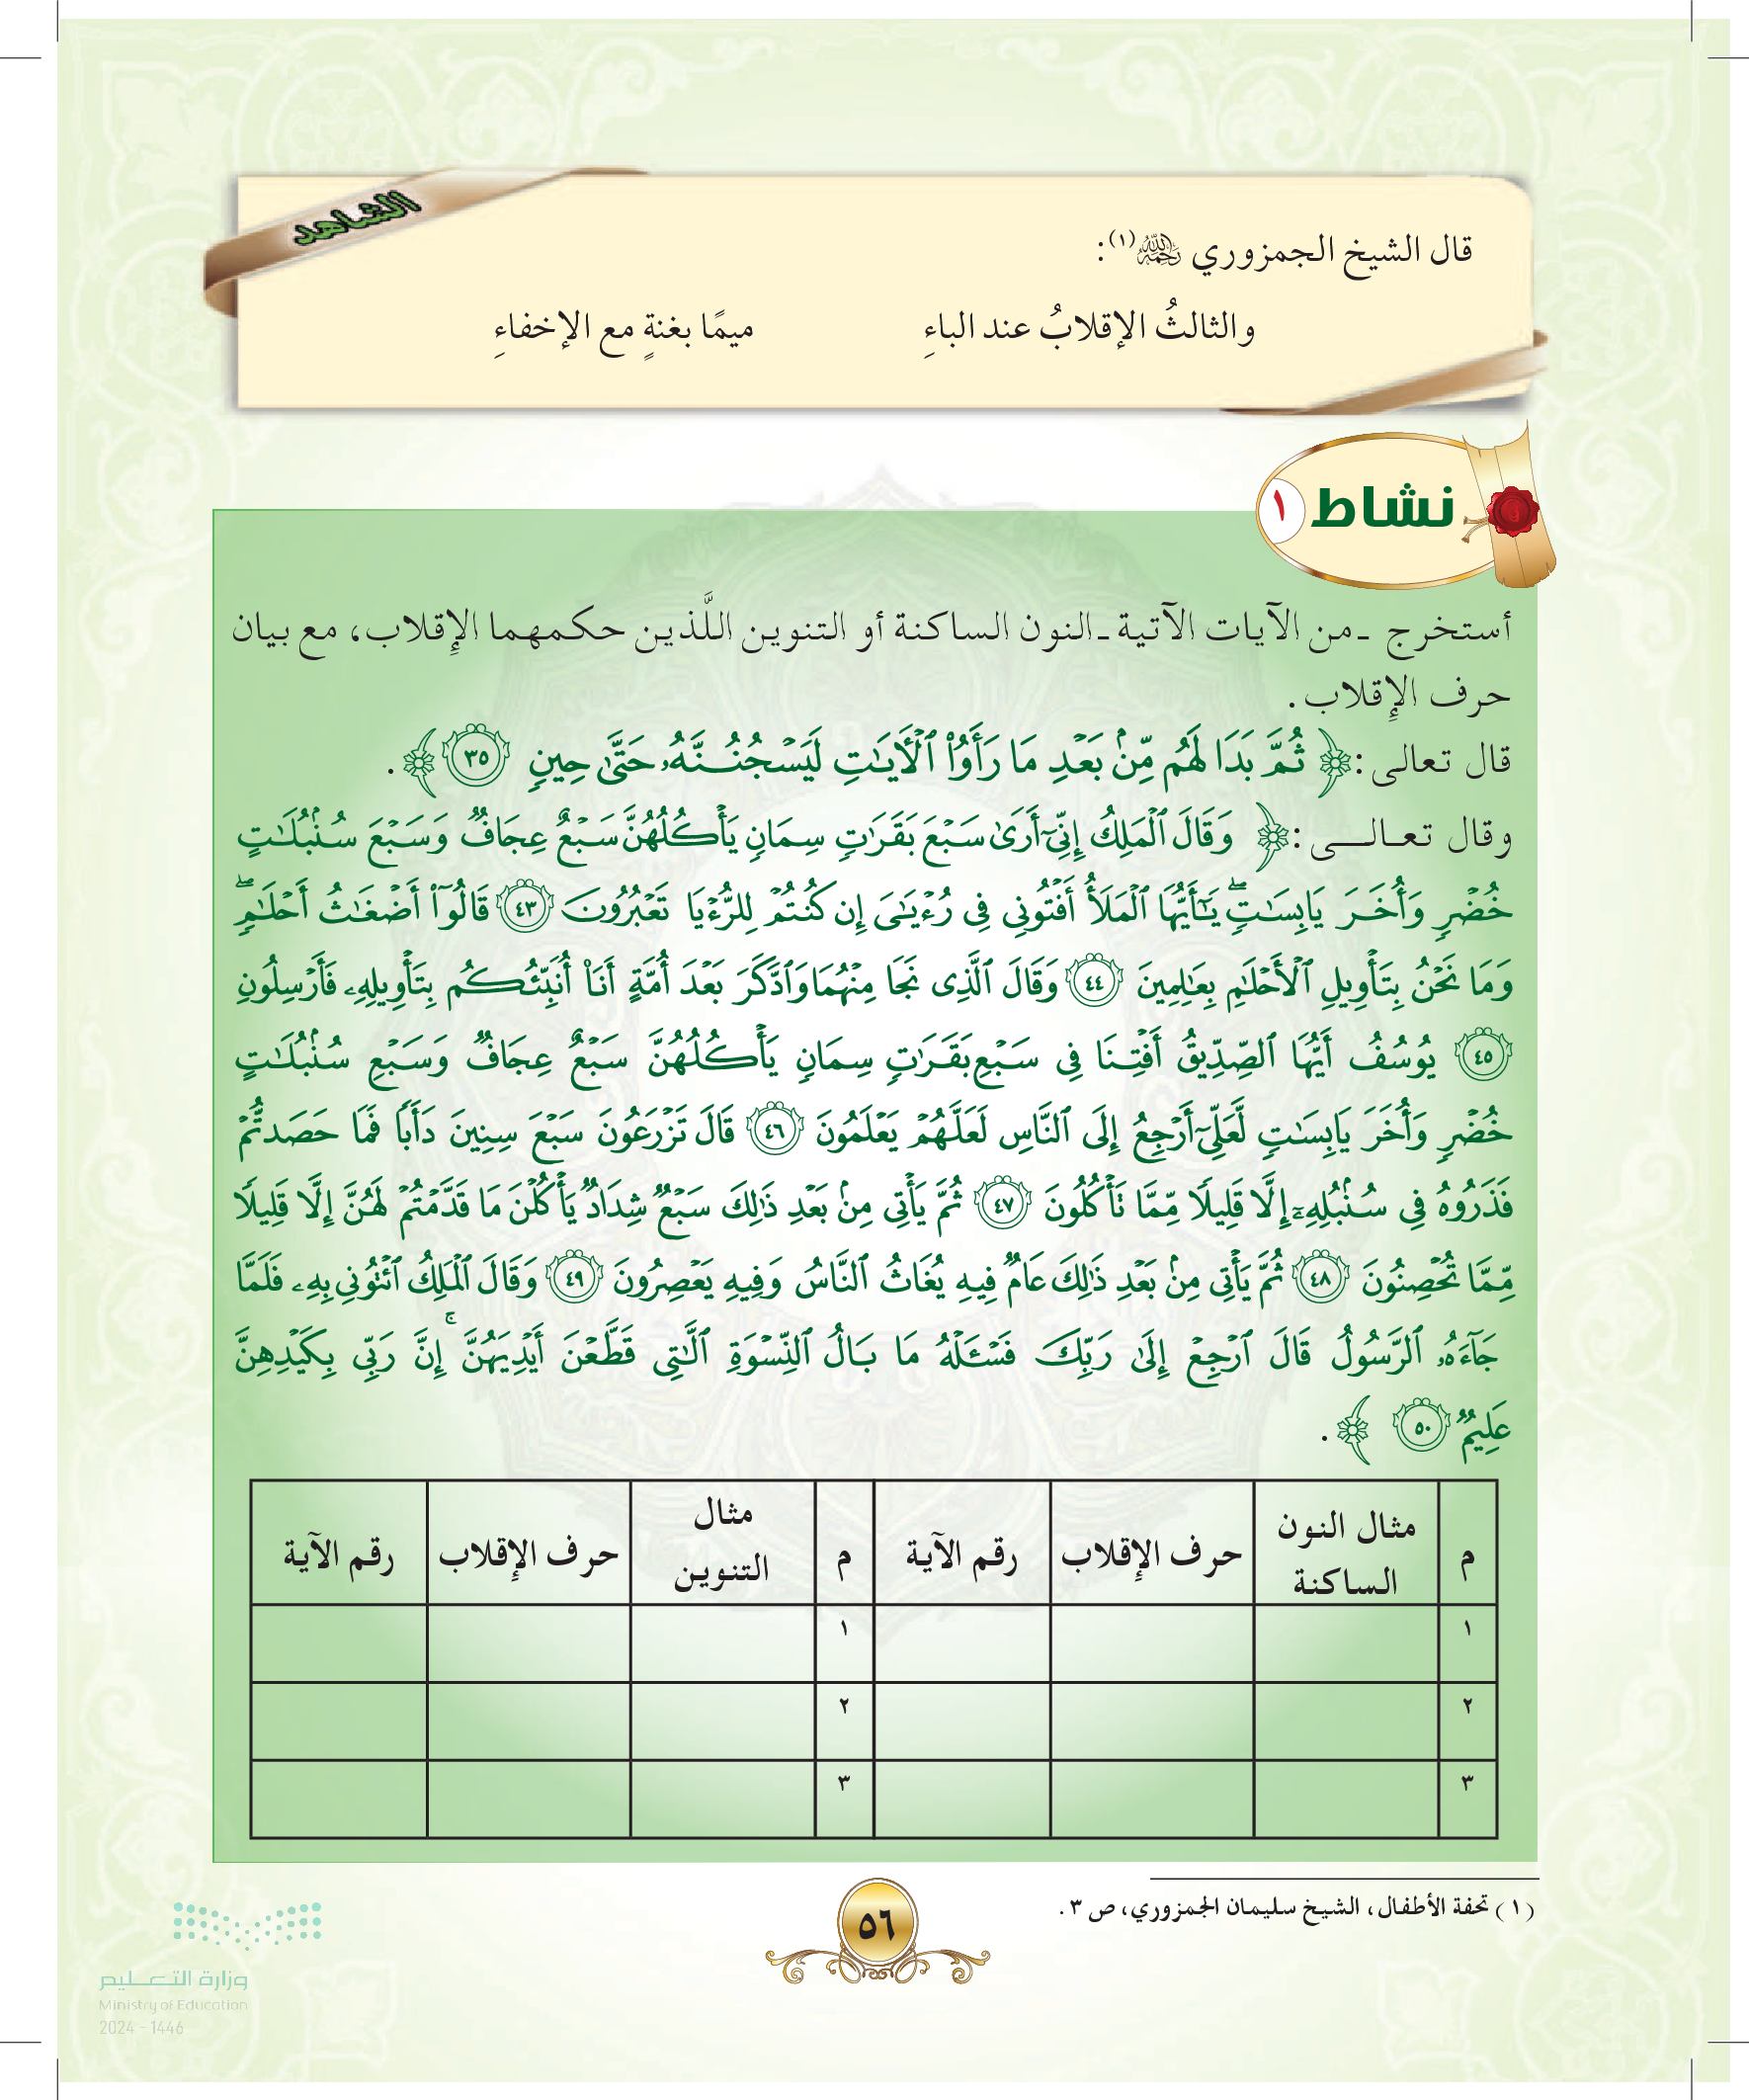 الشاهد
قال الشيخ الجمزوري رحمه الله(١):
والثالثُ الإقلابُ عند الباءِ ميمًا بغنةٍ مع الإخفاءِ
نشاط ١
أستخرج ـ من الآيات الآتية ـ النون الساكنة أو التنوين اللَّذين حكمهما الإِقلاب، مع بيان
حرف الإِقلاب.
قال تعالى: ﴿ ثُمَّ بَدَا لَهُم مِّنۢ بَعۡدِ مَا رَأَوُاْ ٱلۡأٓيَٰتِ لَيَسۡجُنُنَّهُۥ حَتَّىٰ حِينٖ ٣٥ ﴾.
وقال تعالى: ﴿ وَقَالَ ٱلۡمَلِكُ إِنِّيٓ أَرَىٰ سَبۡعَ بَقَرَٰتٖ سِمَانٖ يَأۡكُلُهُنَّ سَبۡعٌ عِجَافٞ وَسَبۡعَ سُنۢبُلَٰتٍ
خُضۡرٖ وَأُخَرَ يَابِسَٰتٖۖ يَٰٓأَيُّهَا ٱلۡمَلَأُ أَفۡتُونِي فِي رُءۡيَٰيَ إِن كُنتُمۡ لِلرُّءۡيَا تَعۡبُرُونَ ٤٣ قَالُوٓاْ أَضۡغَٰثُ أَحۡلَٰمٖۖ
وَمَا نَحۡنُ بِتَأۡوِيلِ ٱلۡأَحۡلَٰمِ بِعَٰلِمِينَ ٤٤ وَقَالَ ٱلَّذِي نَجَا مِنۡهُمَا وَٱدَّكَرَ بَعۡدَ أُمَّةٍ أَنَا۠ أُنَبِّئُكُم بِتَأۡوِيلِهِۦ فَأَرۡسِلُونِ
٤٥ يُوسُفُ أَيُّهَا ٱلصِّدِّيقُ أَفۡتِنَا فِي سَبۡعِ بَقَرَٰتٖ سِمَانٖ يَأۡكُلُهُنَّ سَبۡعٌ عِجَافٞ وَسَبۡعِ سُنۢبُلَٰتٍ
خُضۡرٖ وَأُخَرَ يَابِسَٰتٖ لَّعَلِّيٓ أَرۡجِعُ إِلَى ٱلنَّاسِ لَعَلَّهُمۡ يَعۡلَمُونَ ٤٦ قَالَ تَزۡرَعُونَ سَبۡعَ سِنِينَ دَأَبٗا فَمَا حَصَدتُّمۡ
فَذَرُوهُ فِي سُنۢبُلِهِۦٓ إِلَّا قَلِيلٗا مِّمَّا تَأۡكُلُونَ ٤٧ ثُمَّ يَأۡتِي مِنۢ بَعۡدِ ذَٰلِكَ سَبۡعٞ شِدَادٞ يَأۡكُلۡنَ مَا قَدَّمۡتُمۡ لَهُنَّ إِلَّا قَلِيلٗا
مِّمَّا تُحۡصِنُونَ ٤٨ ثُمَّ يَأۡتِي مِنۢ بَعۡدِ ذَٰلِكَ عَامٞ فِيهِ يُغَاثُ ٱلنَّاسُ وَفِيهِ يَعۡصِرُونَ ٤٩ وَقَالَ ٱلۡمَلِكُ ٱئۡتُونِي بِهِۦ فَلَمَّا
جَآءَهُ ٱلرَّسُولُ قَالَ ٱرۡجِعۡ إِلَىٰ رَبِّكَ فَسۡـَٔلۡهُ مَا بَالُ ٱلنِّسۡوَةِ ٱلَّٰتِي قَطَّعۡنَ أَيۡدِيَهُنَّۚ إِنَّ رَبِّي بِكَيۡدِهِنَّ
عَلِيمٞ ٥٠ ﴾.
م مثال النون الساكنة حرف الإِقلاب رقم الآية م مثال التنوين حرف الإِقلاب رقم الآية
١ ١
٢ ٢
٣ ٣
(١) تحفة الأطفال، الشيخ سليمان الجمزوري، ص ٣.
٥٦
وزارة التعليم
Ministry of Education
2024 - 1446